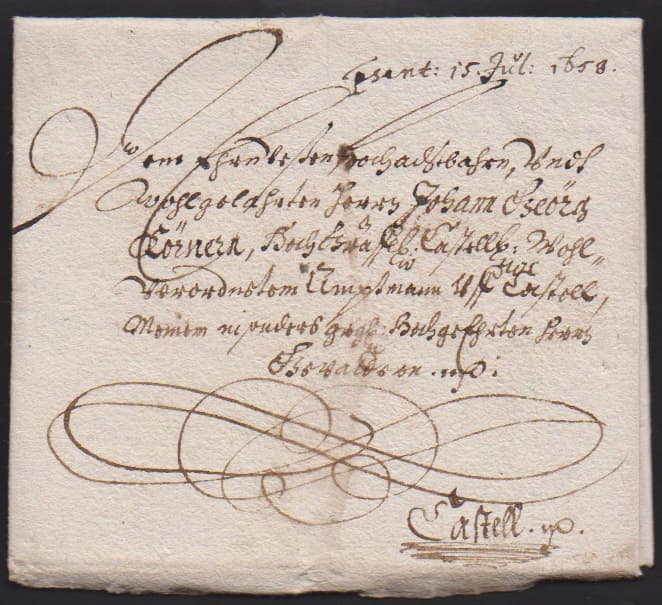 15. Jul: 1658.
Dem Ehrnvesten, Hochachtbahren, Undt
Wohlgelährten Herrn Johann Georg
Körnern, Hochgräffl. Castellß: Wohl„
Verordnetem Amptmann Castell,
Meinem hochgeehrten Herrn
Gevattern
Castell.